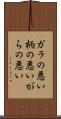 ガラの悪い
柄の悪いが
らの悪い